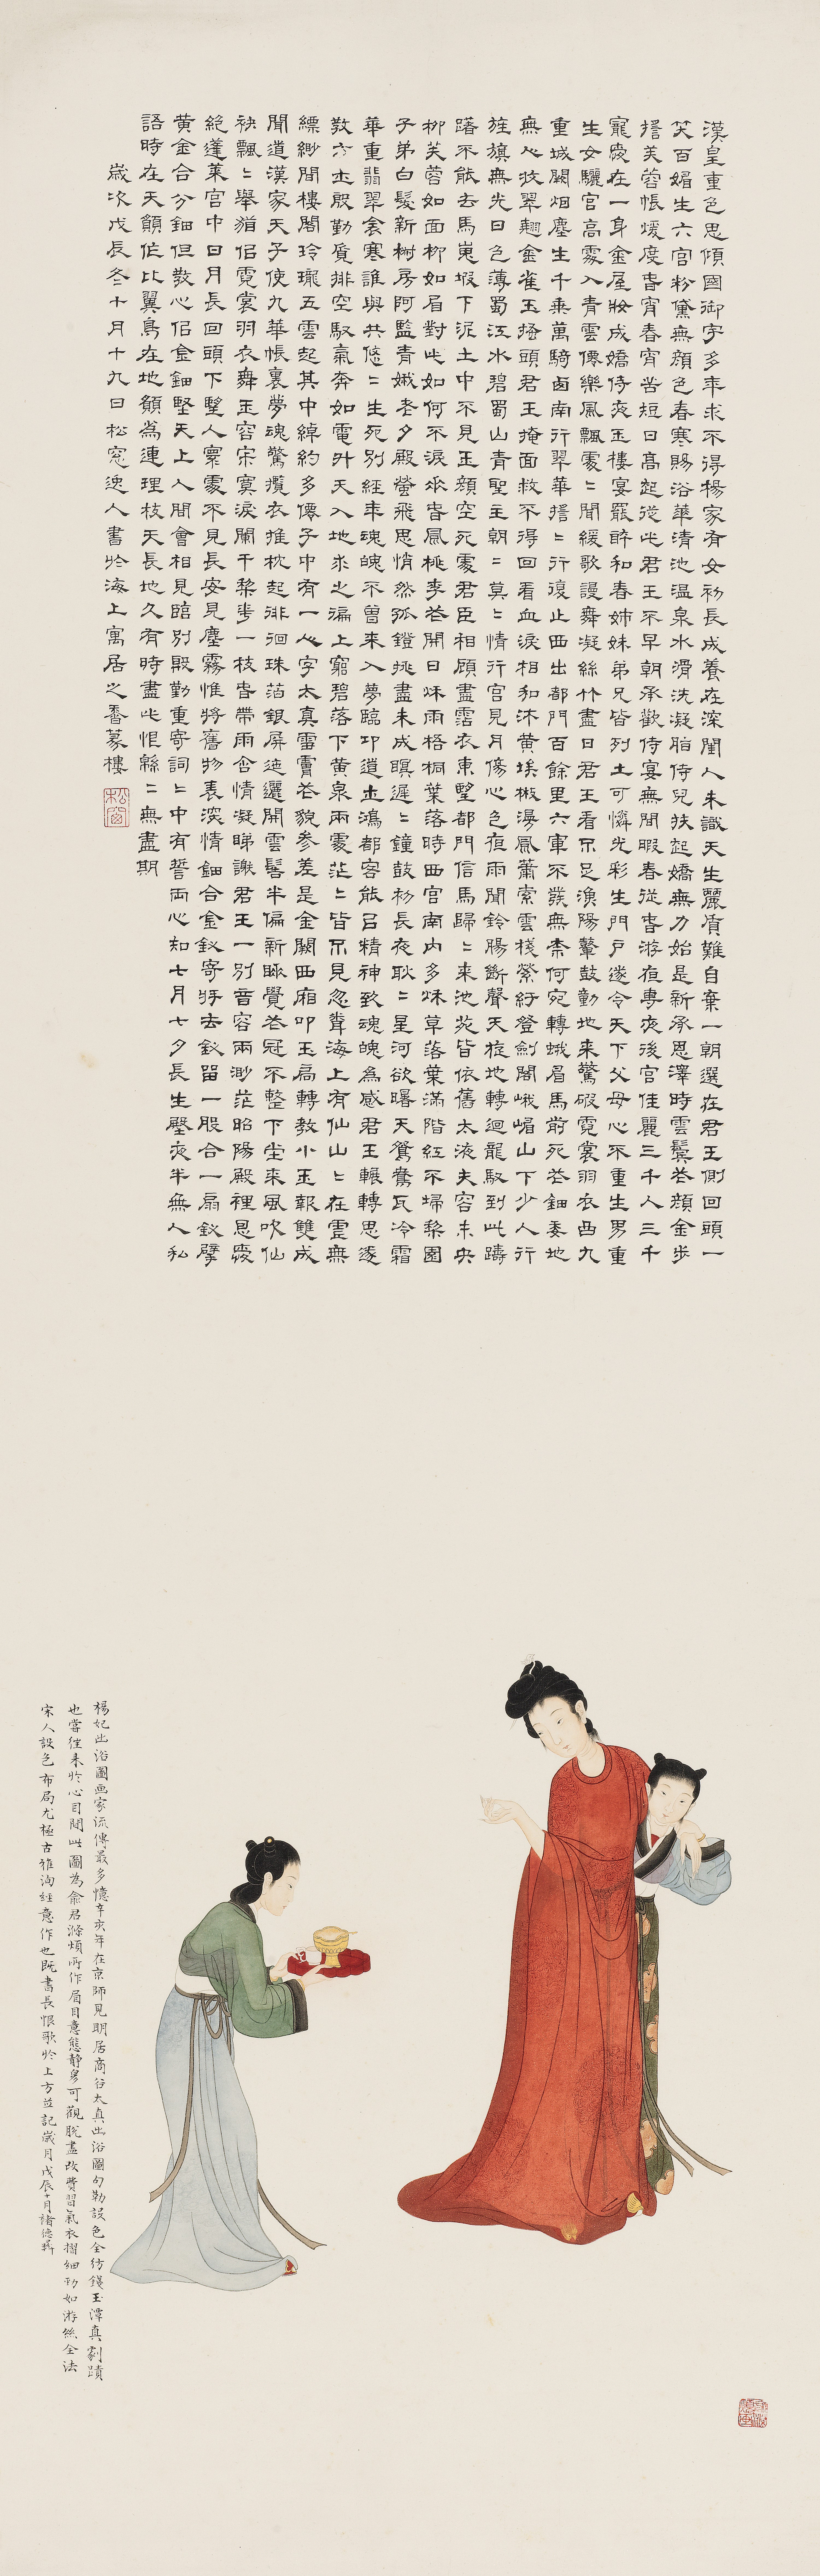 漢皇重色思傾國御宇多年求不得楊家有女初長成養在深閨人未識天生麗質難自棄一朝選在君王側回頭一
笑百媚生六宮粉黛無顏色春寒賜浴華清池溫泉水滑洗凝脂侍兒扶起嬌無力始是新承恩澤時雲鬢花顏金步
搖芙蓉帳煖度春宵春宵苦短日高起從此君王不早朝承歡侍宴無閒暇春從春游夜專夜後宮佳麗三千人三千
寵愛在一身金屋妝成嬌侍夜玉樓宴罷醉和春姊妹弟兄皆列土可憐光彩生門戶遂令天下父母心不重生男重
生女驪宮高處入青雲僊樂風飄處〻聞緩歌謾舞凝絲竹盡日君王看不足漁陽鼙鼓動地來驚破霓裳羽衣曲九
重城闕烟塵生千乘萬騎西南行翠華搖〻行復止西出都門百餘里六軍不發無柰何宛轉蛾眉馬前死花鈿委地
無人收翠翹金雀玉搔頭君王掩面救不得回看血淚相和流黃埃散漫風蕭索雲棧縈紆登劍閣峨嵋山下少人行
旌旗無光日色薄蜀江水碧蜀山青聖主朝〻莫〻情行宮見月傷心色夜雨聞鈴腸斷聲天旋地轉迴龍馭到此躊
躇不能去馬嵬坡下泥土中不見玉顏空死處君臣相顧盡霑衣東望都門信馬歸〻來池苑皆依舊太液夫容未央
柳芙蓉如面柳如眉對此如何不淚垂春風桃李花開日秋雨梧桐葉落時西宮南內多秋草落葉滿階紅不埽梨園
子弟白髮新椒房阿監青娥老夕殿螢飛思悄然孤鐙挑盡未成瞑遲〻鐘鼓初長夜耿〻星河欲曙天鴛鴦瓦冷霜
華重翡翠衾寒誰與共悠〻生死別經年魂魄不曾來入夢臨邛道士鴻都客能以精神致魂魄為感君王輾轉思遂
教方士殷勤覓排空馭氣奔如電升天入地求之遍上窮碧落下黃泉兩處茫〻皆不見忽聞海上有仙山〻在虛無
縹緲間樓閣玲瓏五雲起其中綽約多僊子中有一人字太真雪膚花貌參差是金闕西廂叩玉扃轉教小玉報雙成
聞道漢家天子使九華帳裏夢魂驚攬衣推枕起徘徊珠箔銀屏迤邐開雲髻半偏新睡覺花冠不整下堂來風吹仙
袂飄〻舉猶侣霓裳羽衣舞玉容寂寞淚闌干梨花一枝春帶雨含情凝睇謝君王一別音容兩渺茫昭陽殿裡恩愛
絕蓬萊宮中日月長回頭下望人寰處不見長安見塵霧惟將舊物表深情鈿合金釵寄將去釵留一股合一扇釵擘
黃金合分鈿但教心侣金鈿堅天上人間會相見臨別殷勤重寄詞〻中有誓兩心知七月七夕長生殿夜半無人私
語時在天願作比翼鳥在地願為連理枝天長地久有時盡此恨緜〻無盡期
歲次戊辰冬十月十九日松窓逸人書於海上寓居之香篆樓
松窗
楊妃出浴圖畫家流傳最多憶辛亥年在京師見明居商谷太真出浴圖勾勒設色全仿錢玉潭真劇蹟
也嘗往來於心目間此圖為俞君滌煩所作眉目意態靜穆可觀脫盡改費習氣衣摺細勁如游絲全法
宋人設色布局尤極古雅洵經意作也既書長恨歌於上方並記歲月戊辰十月褚德彝